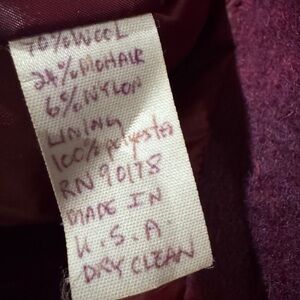 70% WOOL
24% MOHAIR
6% NYLON
LINING
100% polyester
RN 90178
MADE IN
U.S.A.
DRY CLEAN